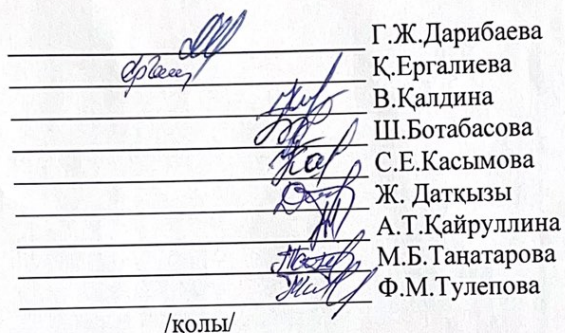 Г.Ж.Дарибаева
Қ.Ергалиева
В.Қалдина
Ш.Ботабасова
С.Е.Касымова
Ж. Датқызы
А.Т.Қайруллина
М.Б.Таңатарова
Ф.М.Тулепова
/қолы/